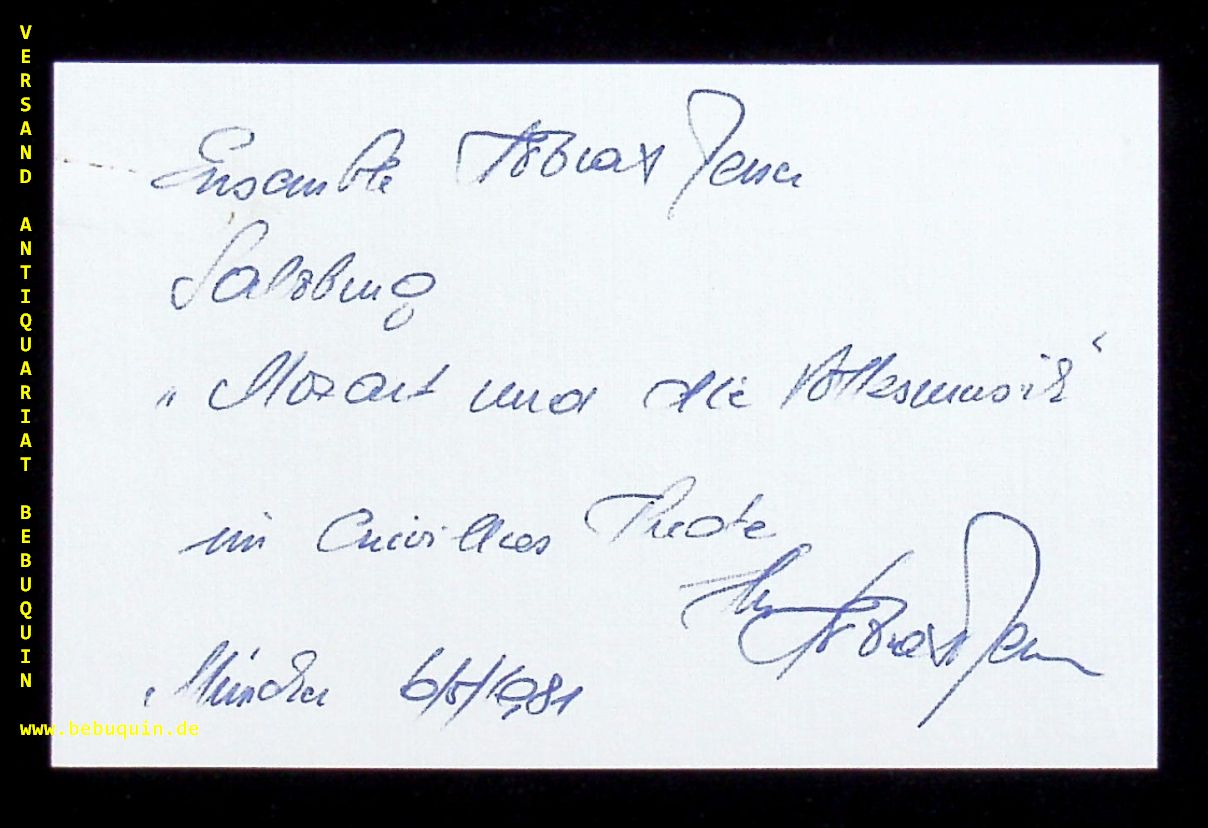 VERSAND ANTIQUARIAT BEBUQUIN
Ensemble Tobias Reiser
Salzburg
„Mozart und die Volksmusik“
im Cuvillies Theater
Tobias Reiser
München 6/5/1981
www.bebuquin.de